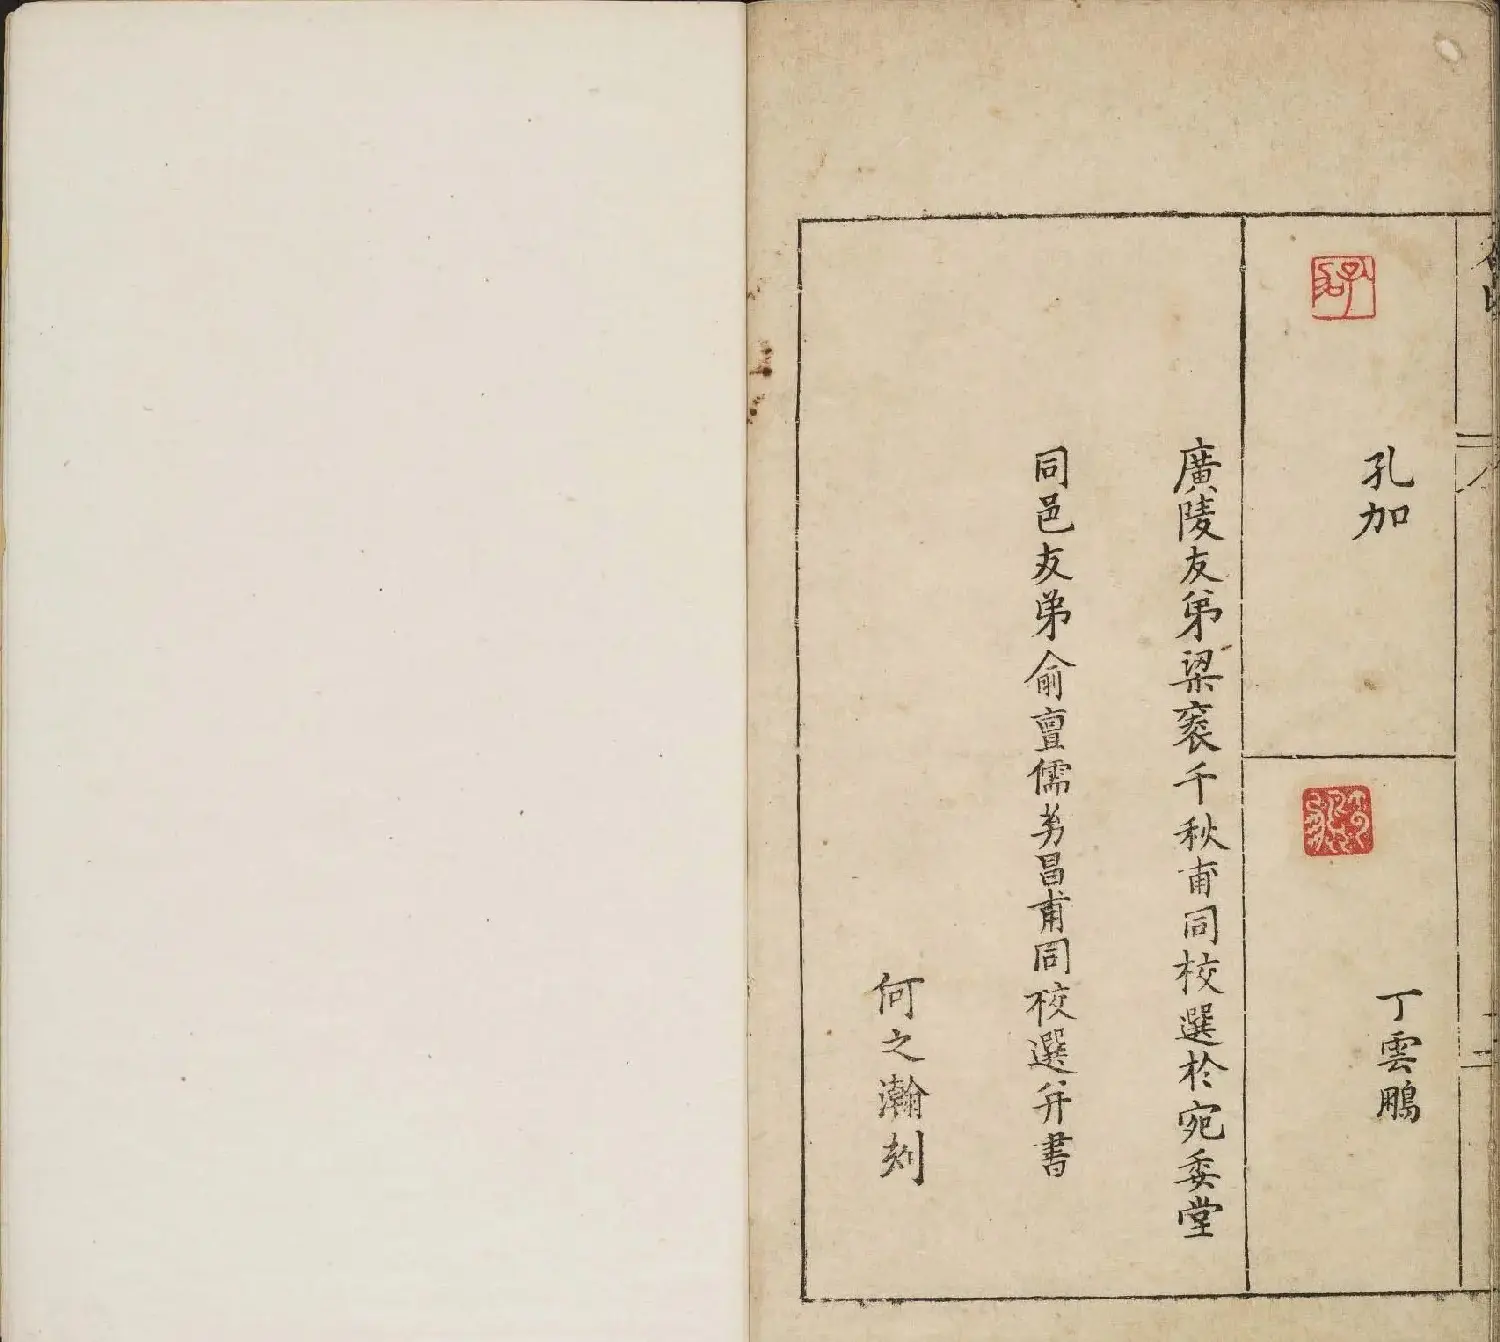 孔加
丁雲鵬
廣陵友弟梁袠千秋甫同校選於宛委堂
同邑友弟俞亶儒昌甫同校選并書
何之瀚刻